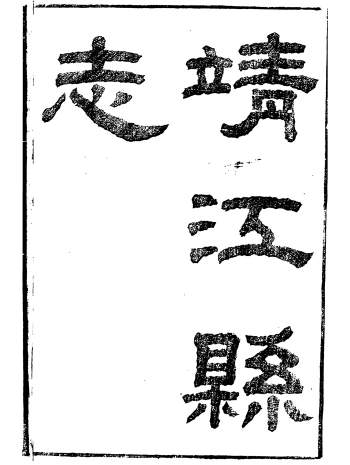 靖江縣
志